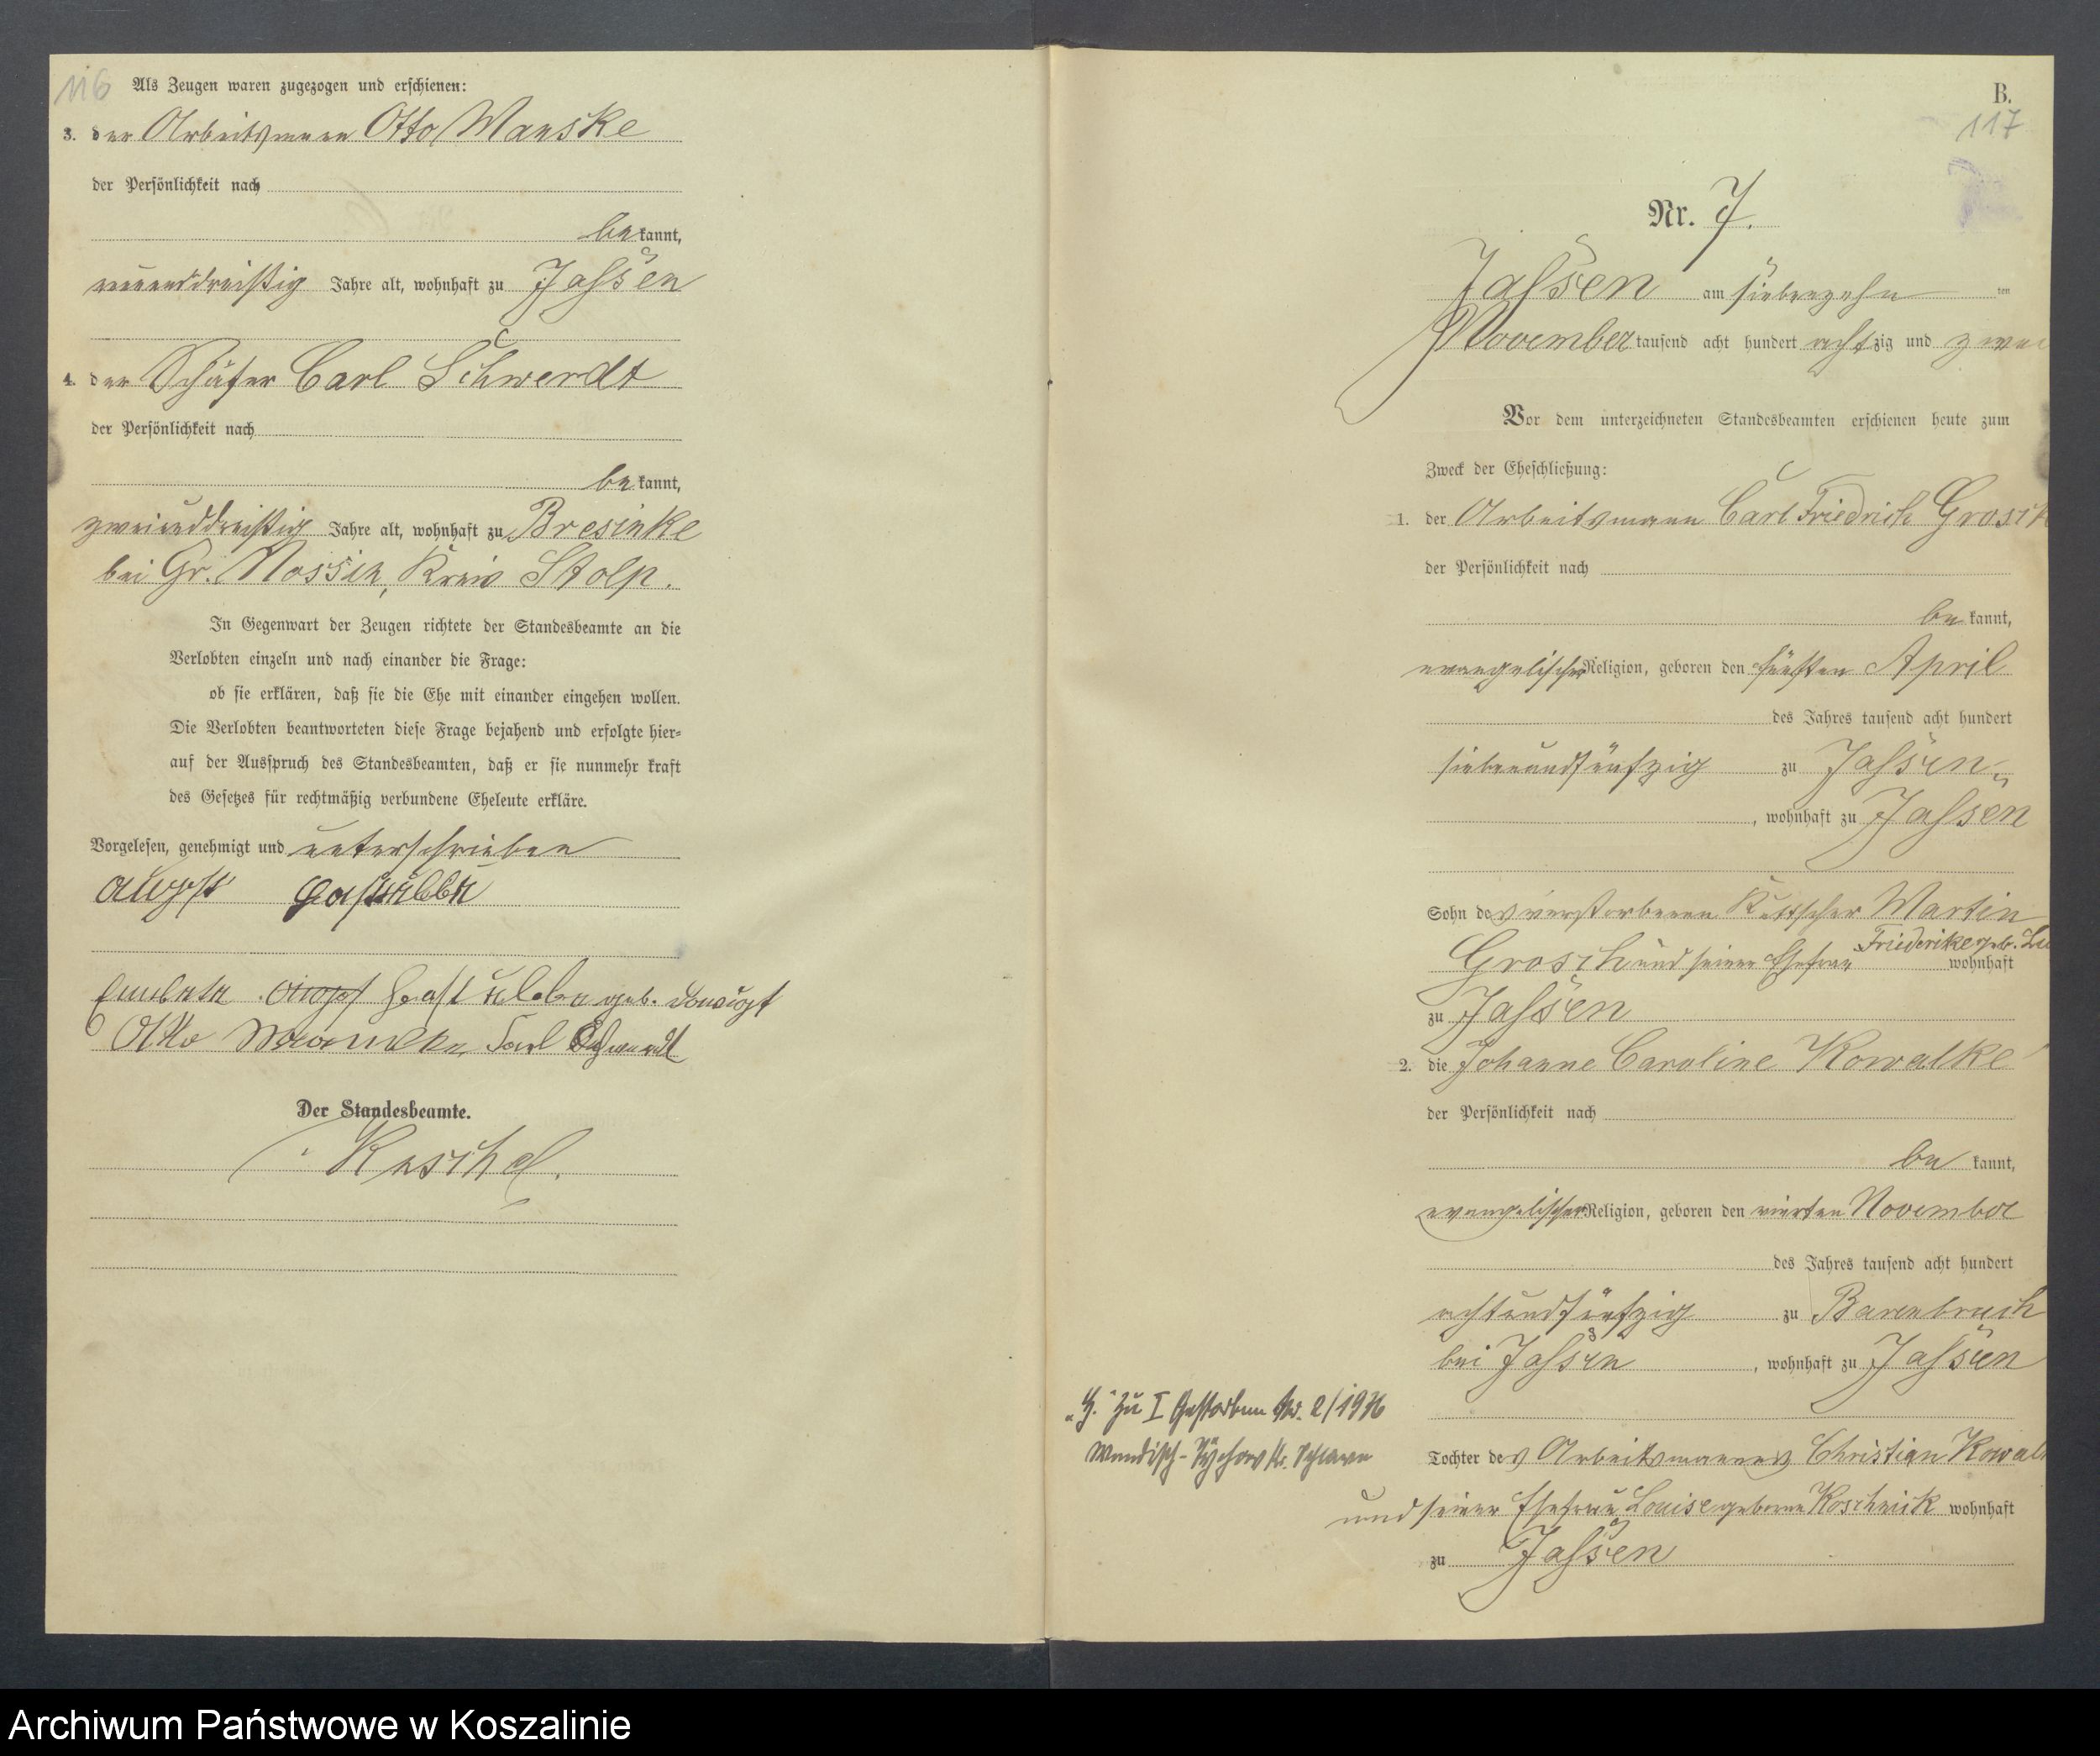 116
Als Zeugen waren zugezogen und erschienen:
3. der Arbeitsmann Otto Manske
der Persönlichkeit nach
bekannt,
neununddreißig Jahre alt, wohnhaft zu Jassen
4. der Schäfer Carl Schwerdt
der Persönlichkeit nach
bekannt,
zweiunddreißig Jahre alt, wohnhaft zu Bresinke
bei Gr. Nossin, Kreis Stolp.
In Gegenwart der Zeugen richtete der Standesbeamte an die
Verlobten einzeln und nach einander die Frage:
ob sie erklären, daß sie die Ehe mit einander eingehen wollen.
Die Verlobten beantworteten diese Frage bejahend und erfolgte hier-
auf der Ausspruch des Standesbeamten, daß er sie nunmehr kraft
des Gesetzes für rechtmäßig verbundene Eheleute erkläre.
Vorgelesen, genehmigt und unterschrieben
geb.
Otto Carl Schwerdt
Der Standesbeamte.
B.
117
Nr. 7.
Jassen am siebenzehn ten
November tausend acht hundert achtzig und zwei
Vor dem unterzeichneten Standesbeamten erschienen heute zum
Zweck der Eheschließung:
1. der Arbeitsmann Carl Friedrich Grosch
der Persönlichkeit nach
bekannt,
evangelischer Religion, geboren den fünften April
des Jahres tausend acht hundert
siebenundfünfzig zu Jassen
, wohnhaft zu Jassen
Sohn des verstorbenen Kutscher Martin
Grosch und seiner Ehefrau Friederike geb.
wohnhaft
zu Jassen
2. die Johanne Caroline Kowalke
der Persönlichkeit nach
bekannt,
evangelischer Religion, geboren den vierten November
des Jahres tausend acht hundert
achtundfünfzig zu Barenbruch
bei Jassen, wohnhaft zu Jassen
Tochter des Arbeitsmannes Christian Kowalk
und seiner Ehefrau Louise geborne Koschnick wohnhaft
zu Jassen
zu I Gestorben Nr. 2/1936
Wendisch-Tychow Kr. Schlawe
Archiwum Państwowe w Koszalinie